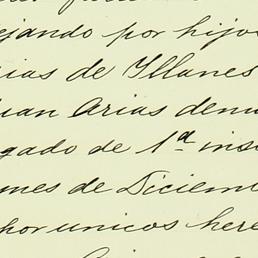 ejando por hijo
ias de Illanes
uan Arias denu
gado de 1ª ins
mes de Diciem
por unicos here